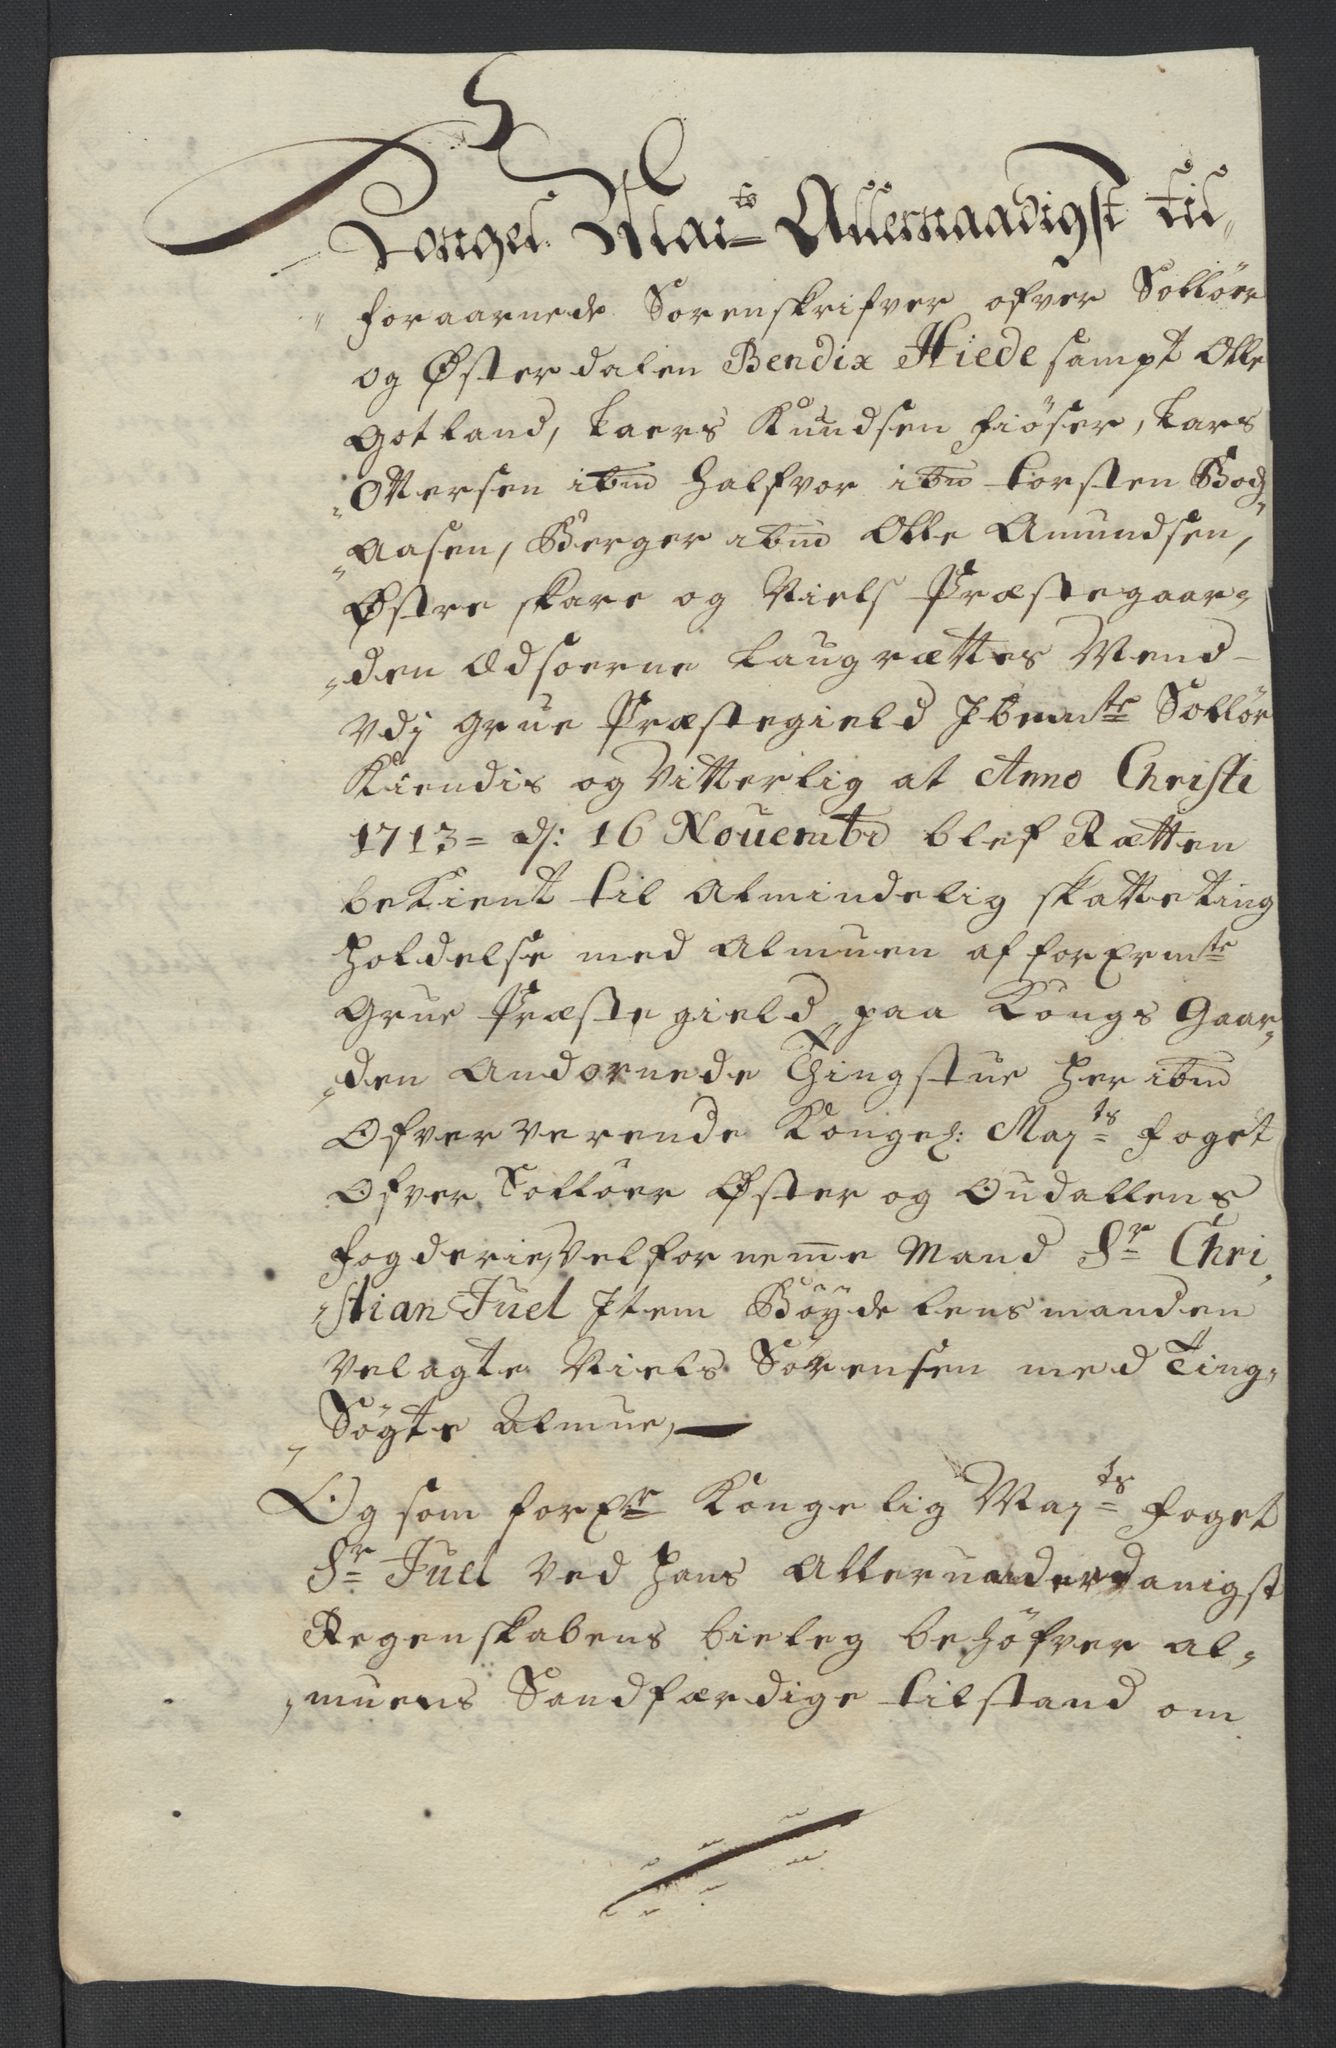 Kongel: Mai<sup>ts</sup> Allernaadigst til„
„foraarnede Sorenskrifver ofver Solløer
og Østerdalen Bendix Hiede sampt Olle
Gotland, Laers Knudsen Fiøser, Lars
„Ottersen ibm Halfvor ibm Torsten Bog„
„Aasen, Berger ibm Olle Amundsen,
Østre Skare og Niels Præstegaar„
„den Edsoerne Laugrættes Mend
Vdj Grue Præstegield Jbemte Solløer
Kiendis og Vitterlig at Anno Christi
1713 = d: 16 Nouembr blef Rætten
beKient til Almindelig skatteting
holdelse med Almuen af forbemte
Grue Præstegield, paa Kongs Gaar„
„den Andornede Thingstue her ibm
Ofververende Kongel: Maj<sup>ts</sup> foget
Ofver Solløer Øster og Oudallens
fogderie, Velforneme Mand Sr Chri„
„stian Juel Jtem Bøyde lensmanden
Velagte Niels Sørensen med Ting„
„Søgte Almue,
Og som forbte Kongelig Maj<sup>ts</sup> foget
Sr Juel Ved hans Allerunderdanigst
Regenskabens bieleg behøfver al„
„muens Sandfærdige tilstand om